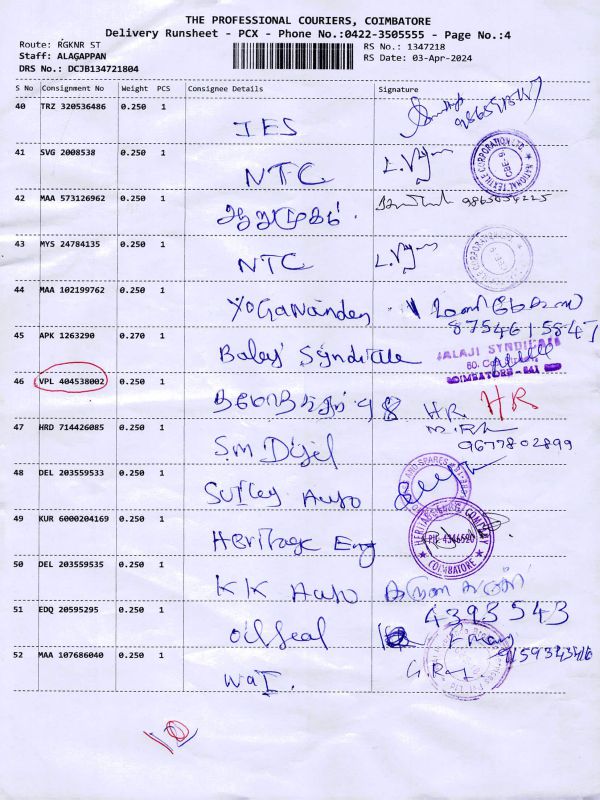 THE PROFESSIONAL COURIERS, COIMBATORE
Delivery Runsheet - PCX - Phone No.:0422-3505555 - Page No.:4
Route: RGKNR ST
RS No.: 1347218
Staff: ALAGAPPAN
RS Date: 03-Apr-2024
DRS No.: DCJB134721804
S No Consignment No Weight PCS Consignee Details Signature
40 TRZ 320536486 0.250 1
IES
41 SVG 2008538 0.250 1
NTC
NATIONAL TEXTILE CORPORATION LTD. CBE-9
42 MAA 573126962 0.250 1
ஆறுமுகம்.
43 MYS 24784135 0.250 1
NTC
44 MAA 102199762 0.250 1
Yoganandey
8754615847
45 APK 1263290 0.270 1
Syndicate
BALAJI SYNDICATE
COIMBATORE - 641
46 VPL 404538002 0.250 1
HR HR
47 HRD 714426085 0.250 1
9677802899
S.M Diesel
48 DEL 203559533 0.250 1
AND SPARES
Auto
49 KUR 6000204169 0.250 1
Heritage Eng
COIMBATORE
50 DEL 203559535 0.250 1
KK Auto
4393543
51 EDQ 20595295 0.250 1
Oil Seal
52 MAA 107686040 0.250 1
G. Raj
10